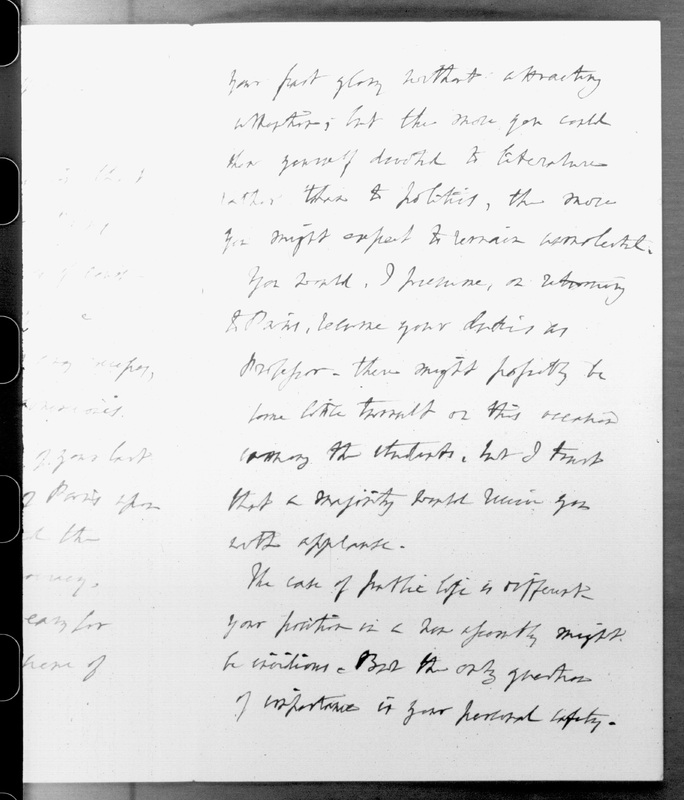 your past glory without attracting
attention; but the more you could
shew yourself devoted to literature
rather than to politics, the more
you might expect to remain unmolested.
You would, I presume, on returning
to Paris, resume your duties as
Professor - there might possibly be
some little tumult on this occasion
among the students, but I trust
that a majority would receive you
with applause.
The case of public life is different
your position in a new assembly might
be invidious - But the only question
of importance is your personal safety -
of your last
of Paris upon
the
easy for
here of